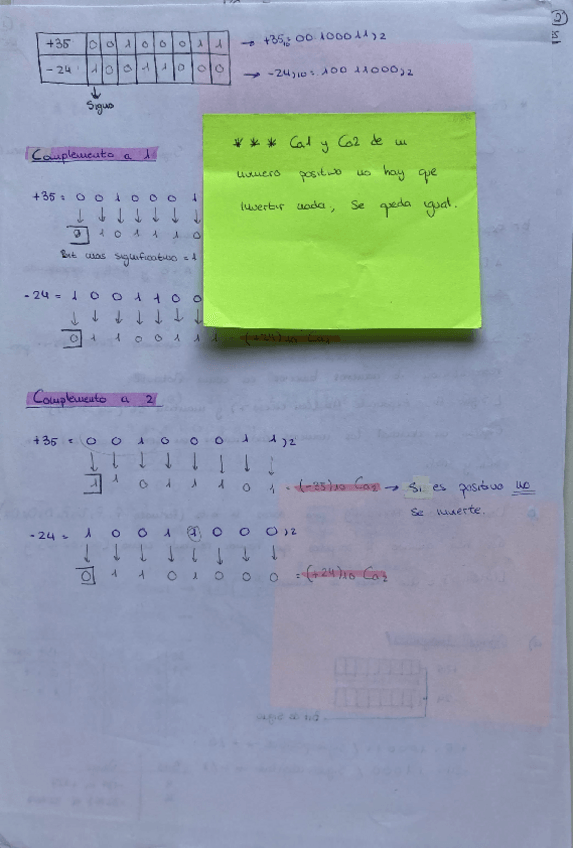 +35 0 0 1 0 0 0 1 1 → +35,10 = 00100011,2
-24 1 0 0 1 1 0 0 0 → -24,10 = 10011000,2
Signo
*** Ca1 y Ca2 de un
numero positivo no hay que
invertir nada, se queda igual.
Complemento a 1
+35 = 0 0 1 0 0 0 1
1 0 1 1 1 0
Bit mas significativo = 1
-24 = 1 0 0 1 1 0 0
0 1 1 0 0 1 1
Complemento a 2
+35 = 0 0 1 0 0 0 1 1,2
1 1 0 1 1 1 0 1 = (-35)10 Ca2 → Si es positivo no
se invierte.
-24 = 1 0 0 1 1 0 0 0,2
0 1 1 0 1 0 0 0 = (+24)10 Ca2